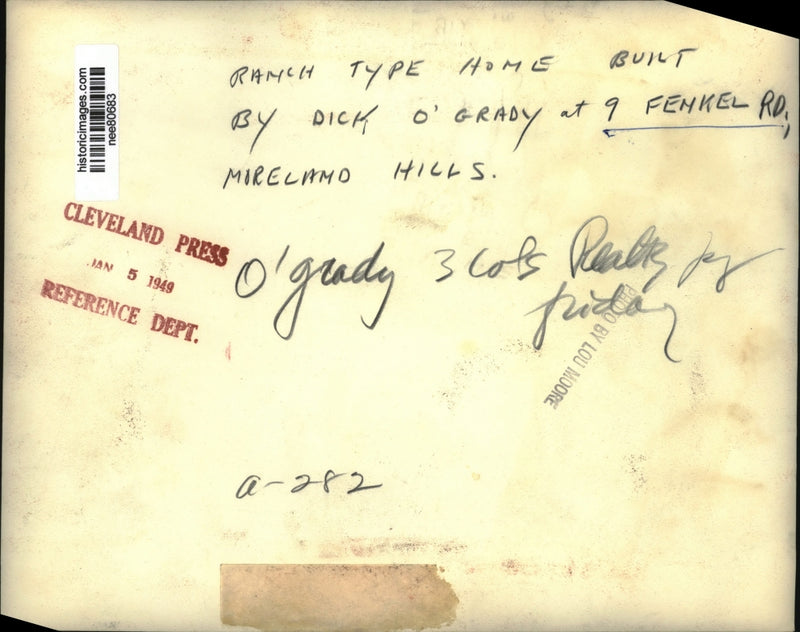 RANCH TYPE HOME BUILT
BY DICK O'GRADY at 9 FENKEL RD.,
MORELAND HILLS.
historicimages.com
nee80683
CLEVELAND PRESS
JAN 5 1949
REFERENCE DEPT.
O'grady 3 Cols Realty pg
friday
PHOTO BY LOU MOORE
a-282